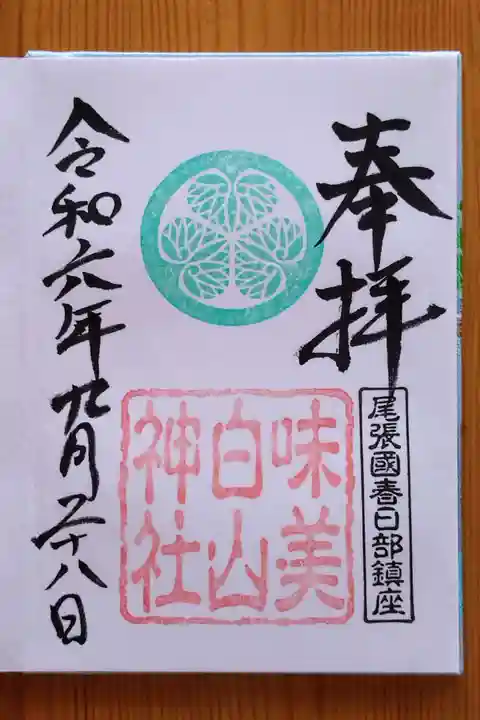 奉拝
尾張國春日部鎮座
味美
白山
神社
令和六年九月二十八日